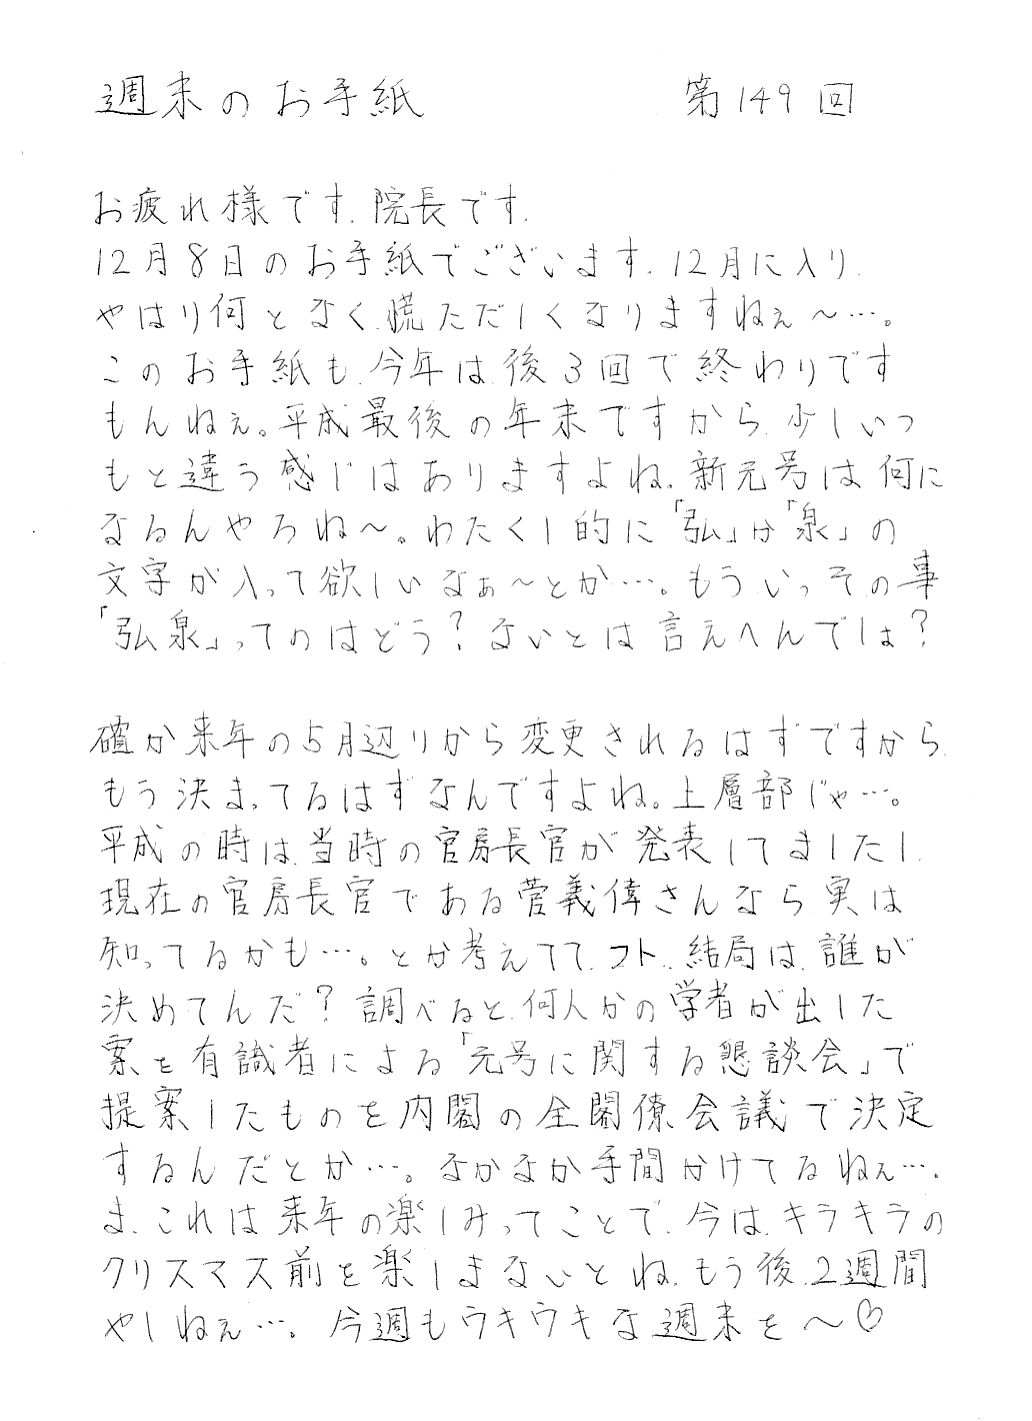 週末のお手紙 第149回
お疲れ様です.院長です.
12月8日のお手紙でございます.12月に入り.
やはり何となく.慌ただしくなりますねぇ〜…。
このお手紙も.今年は.後3回で終わりです
もんねぇ。平成最後の年末ですから.少しいつ
もと違う感じはありますよね.新元号は何に
なるんやろね〜。わたくし的に「弘」か「泉」の
文字が入って欲しいなぁ〜とか…。もういっその事
「弘泉」ってのはどう?ないとは言えへんでしょ?
確か来年の5月辺りから変更されるはずですから.
もう決まってるはずなんですよね。上層部じゃ…。
平成の時は.当時の官房長官が発表してましたし.
現在の官房長官である菅義偉さんなら.実は
知ってるかも…。とか考えてて.フト..結局は.誰が
決めてんだ?調べると.何人かの学者が出した
案を有識者による「元号に関する懇談会」で
提案したものを内閣の全閣僚会議で決定
するんだとか…。なかなか手間かけてるねぇ….
ま.これは来年の楽しみってことで.今は.キラキラの
クリスマス前を楽しまないとね.もう後.2週間
やしねぇ…. 今週もウキウキな週末を〜♡